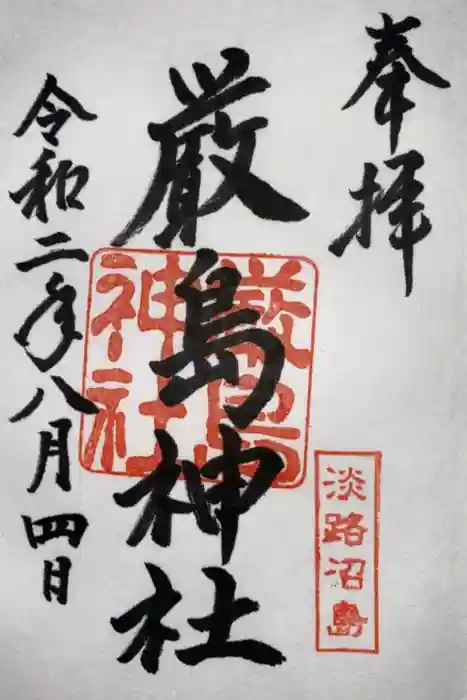 奉拝
淡路沼島
厳島神社
厳島神社
令和二年八月四日